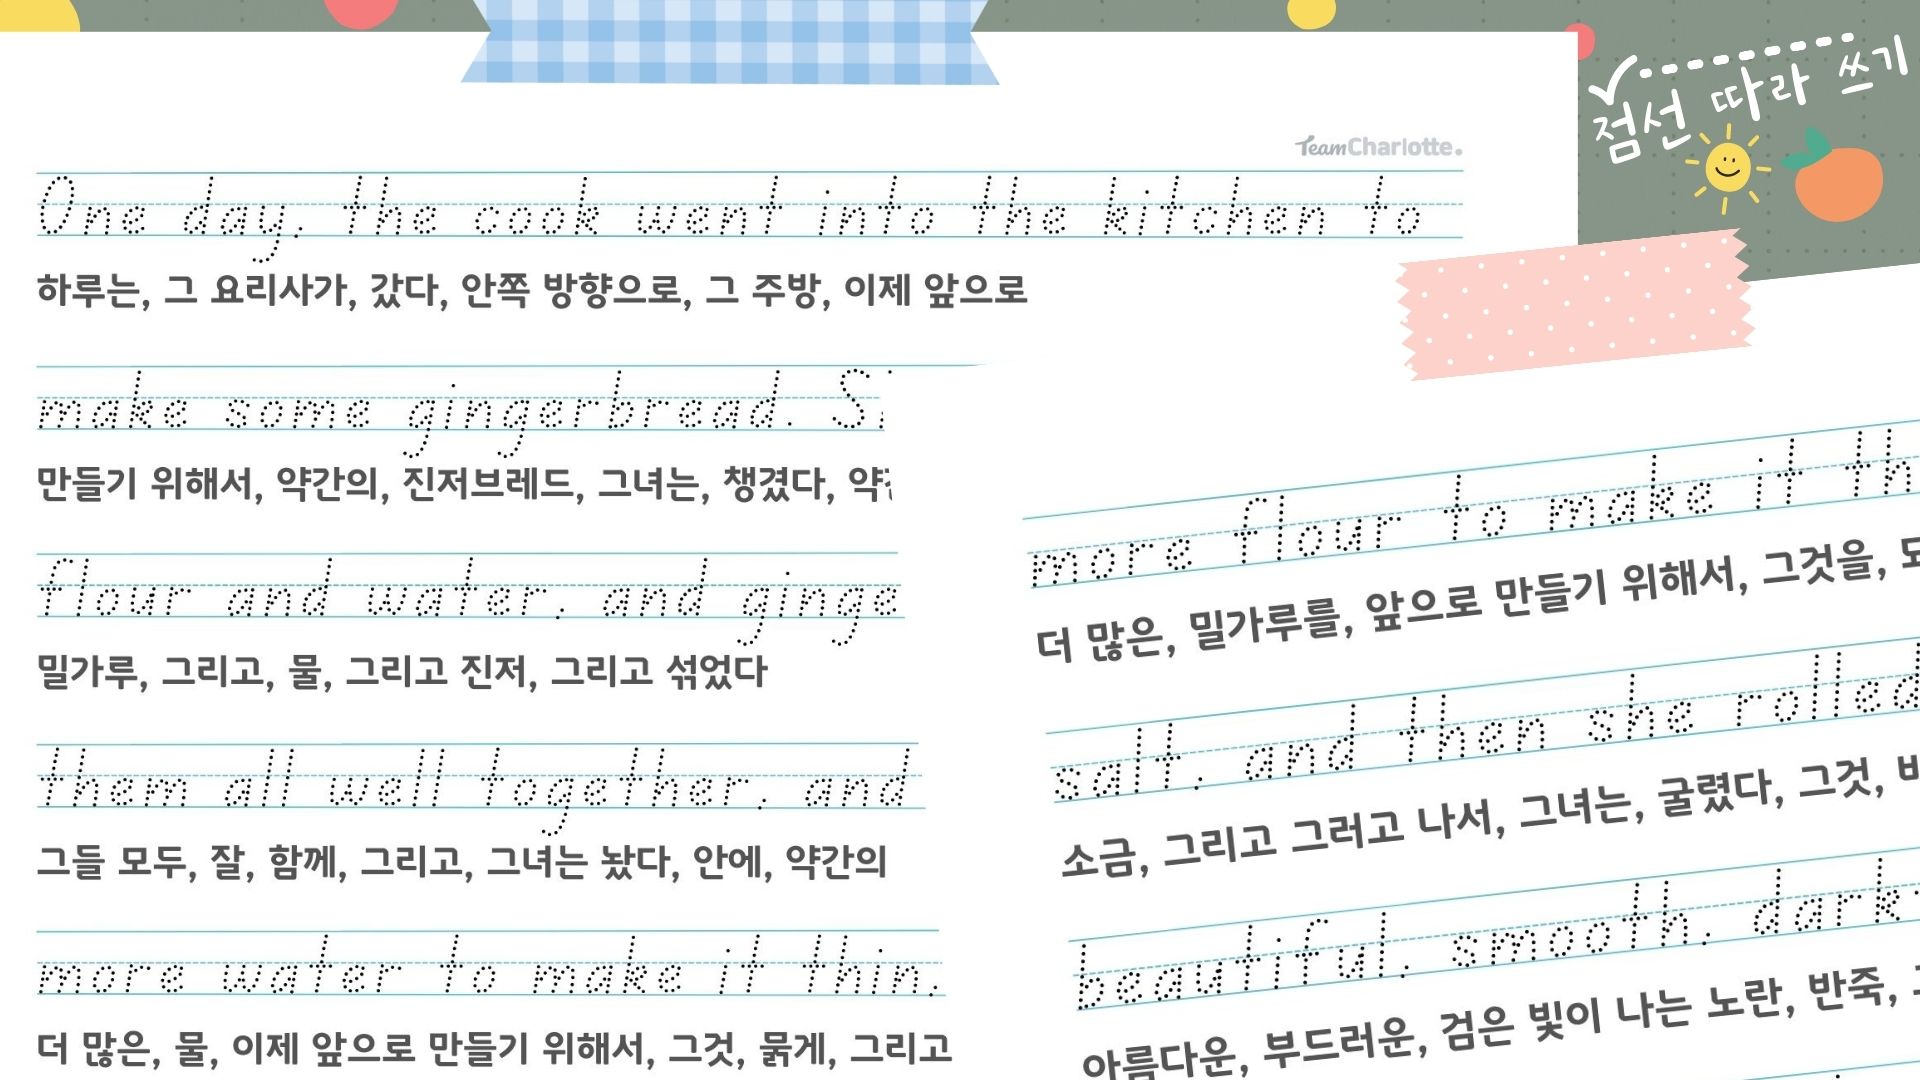 점선 따라 쓰기
TeamCharlotte.
One day, the cook went into the kitchen to
하루는, 그 요리사가, 갔다, 안쪽 방향으로, 그 주방, 이제 앞으로
make some gingerbread.
만들기 위해서, 약간의, 진저브레드, 그녀는, 챙겼다,
flour and water, and
밀가루, 그리고, 물, 그리고 진저, 그리고 섞었다
them all well together, and
그들 모두, 잘, 함께, 그리고, 그녀는 놨다, 안에, 약간의
more water to make it thin,
더 많은, 물, 이제 앞으로 만들기 위해서, 그것, 묽게, 그리고
more flour to make it
더 많은, 밀가루를, 앞으로 만들기 위해서, 그것을,
salt, and then she rolled
소금, 그리고 그러고 나서, 그녀는, 굴렸다, 그것,
beautiful, smooth, dark
아름다운, 부드러운, 검은 빛이 나는 노란, 반죽,